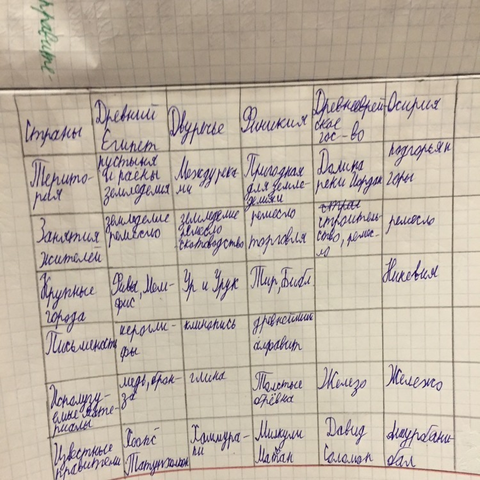 правите
Страны
Древний
Египет
Двуречье
Финикия
Древнееврей
ское
гос-во
Осирия
Терито-
рия
пустыня
земледелия
Междуречь
Пригодная
для земле-
делия
Долина
реки Иордан
подгорьян
горы
Занятия
жителей
земледелие
ремесло
земледелие
ремесло
скотоводство
ремесло
торговля
строитель
ство, ремес-
ло
ремесло
Крупные
города
Фивы, Мем-
фис
Ур и Урук
Тир, Библ
Ниневия
Письменность
иероглиф-
фы
клинопись
древнейший
алфавит
Используе-
емые мате-
риалы
медь, брон-
за
глина
Толстые
брёвна
Железо
Железо
Известные
правители
Хеопс
Хаммура-
пи
Давид
Соломон